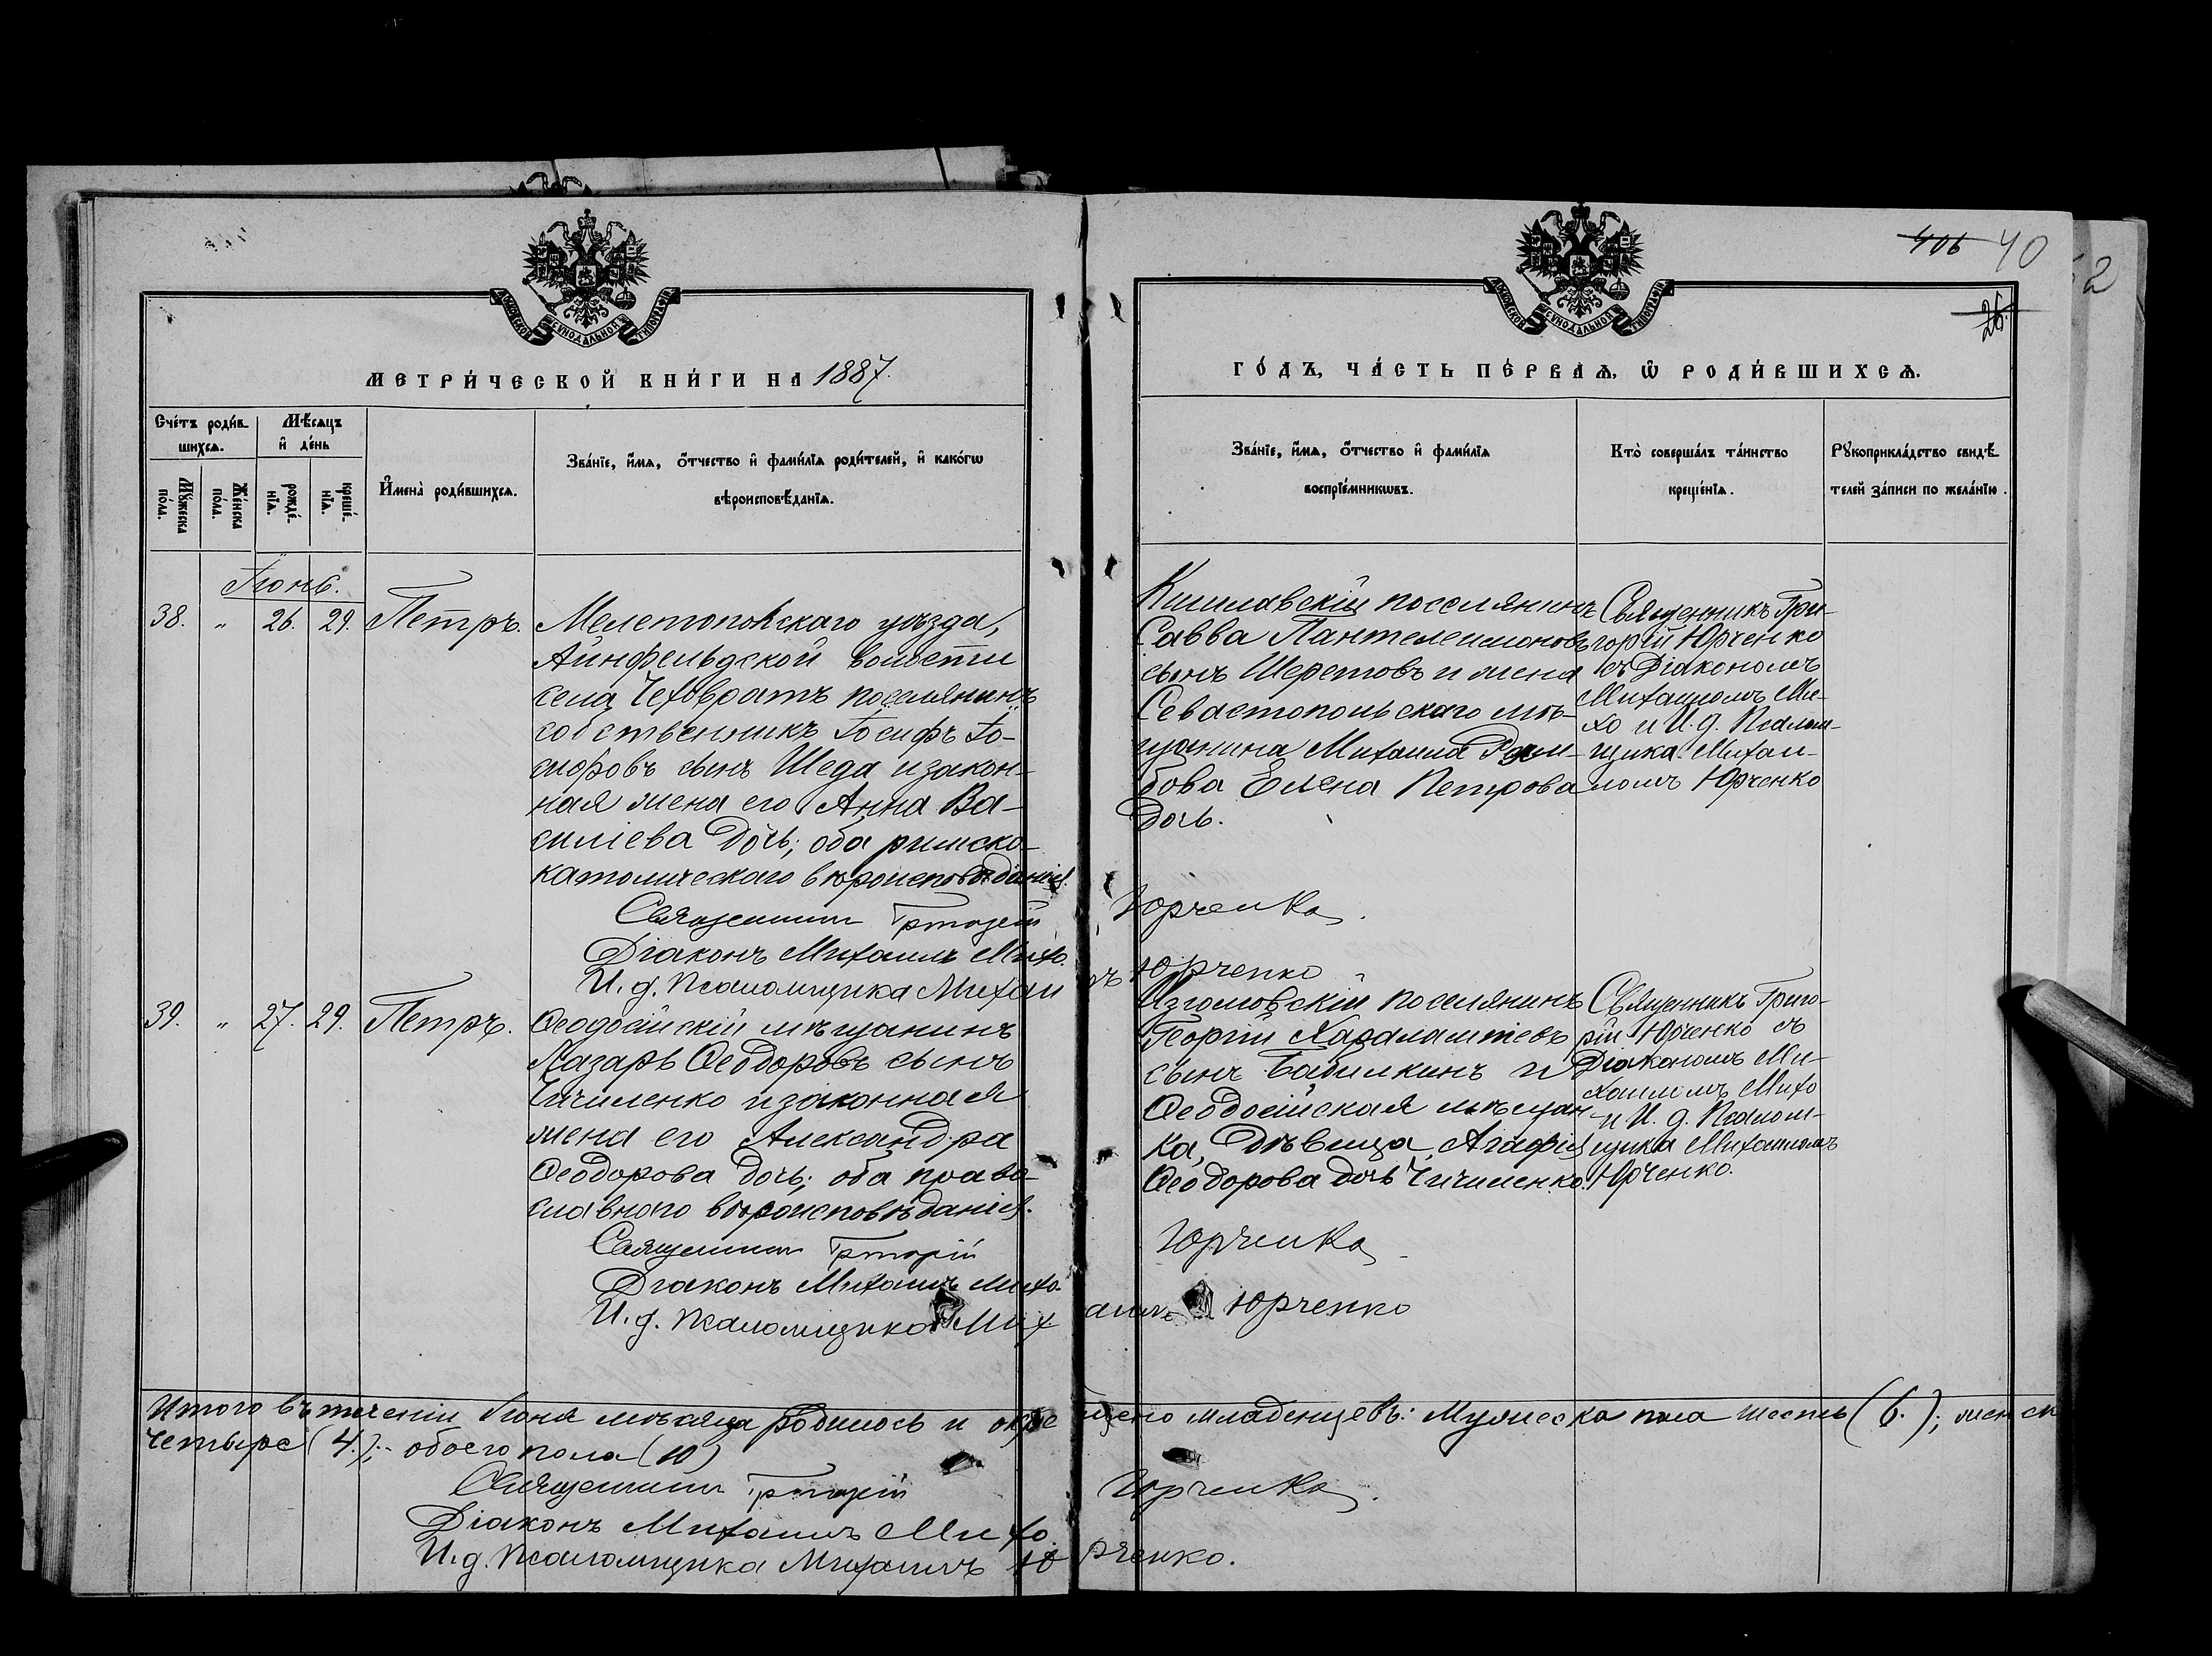 406 40
26.
52
МЕТРИ́ЧЕСКОЙ КНИ́ГИ НА 1887.
ГО́ДЪ, ЧА́СТЬ ПЕ́РВАѦ, Ѡ РОДИ́ВШИХСѦ.
Сче́тъ роди́в-
шихсѧ.
Мѣ́сѧцъ
и де́нь
Мꙋ́жеска по́ла.
Же́нска по́ла.
рожде́-нїѧ.
креще́-нїѧ.
Имена̀ роди́вшихсѧ.
Зва́нїе, и́мѧ, о́тчество и фами́лїѧ роди́телей, и како́гѡ
вѣроисповѣ́данїѧ.
Зва́нїе, и́мѧ, о́тчество и фами́лїѧ
воспрїе́мникѡвъ.
Кто̀ соверша́лъ та́инство
креще́нїѧ.
Рꙋкоприкла́дство свидѣ́-
телей за́писи по жела́нїю.
Іюнь.
38. " 26. 29. Петръ.
Мелетопольскаго уѣзда,
Айнфельдской волости
села Чехоградъ поселянинъ
собственникъ Іосифъ Іо-
сифовъ сынъ Шеда и закон-
ная жена его Анна Ва-
силіева дочь; оба римско-
католическаго вѣроисповѣданія.
Кишлавскій поселянинъ
Савва Пантелеимоновъ
сынъ Шеретовъ и жена
Севастопольскаго мѣ-
щанина Михаила
Елена Петрова
дочь.
Священникъ Гри-
горій Юрченко
съ Діакономъ
Михаиломъ Ми-
хо и И. д. Псалом-
щика Михаи-
ломъ Юрченко
Священникъ Григорій Юрченко.
Діаконъ Михаилъ Михо.
И. д. Псаломщика Михаилъ Юрченко
39. " 27. 29. Петръ.
Ѳеодосійскій мѣщанинъ
Лазарь Ѳеодоровъ сынъ
Чичиленко и законная
жена его Александра
Ѳеодорова дочь; оба право-
славного вѣроисповѣданія.
Изюмовскій поселянинъ
Георгій Харалампіевъ
сынъ и
Ѳеодосійская мѣщан-
ка, дѣвица Агафія
Ѳеодорова дочь Чичиленко.
Священникъ Григо-
рій Юрченко съ
Діакономъ Ми-
хаиломъ Михо
и И. д. Псалом-
щика Михаиломъ
Юрченко.
Священникъ Григорій Юрченко
Діаконъ Михаилъ Михо.
И. д. Псаломщика Михаилъ Юрченко
Итого въ теченіи Іюня мѣсяца родилось и окрещено младенцевъ: Мужеска пола шесть (6.); женск
четыре (4.); обоего пола (10)
Священникъ Григорій Юрченко.
Діаконъ Михаилъ Михо.
И. д. Псаломщика Михаилъ Юрченко.